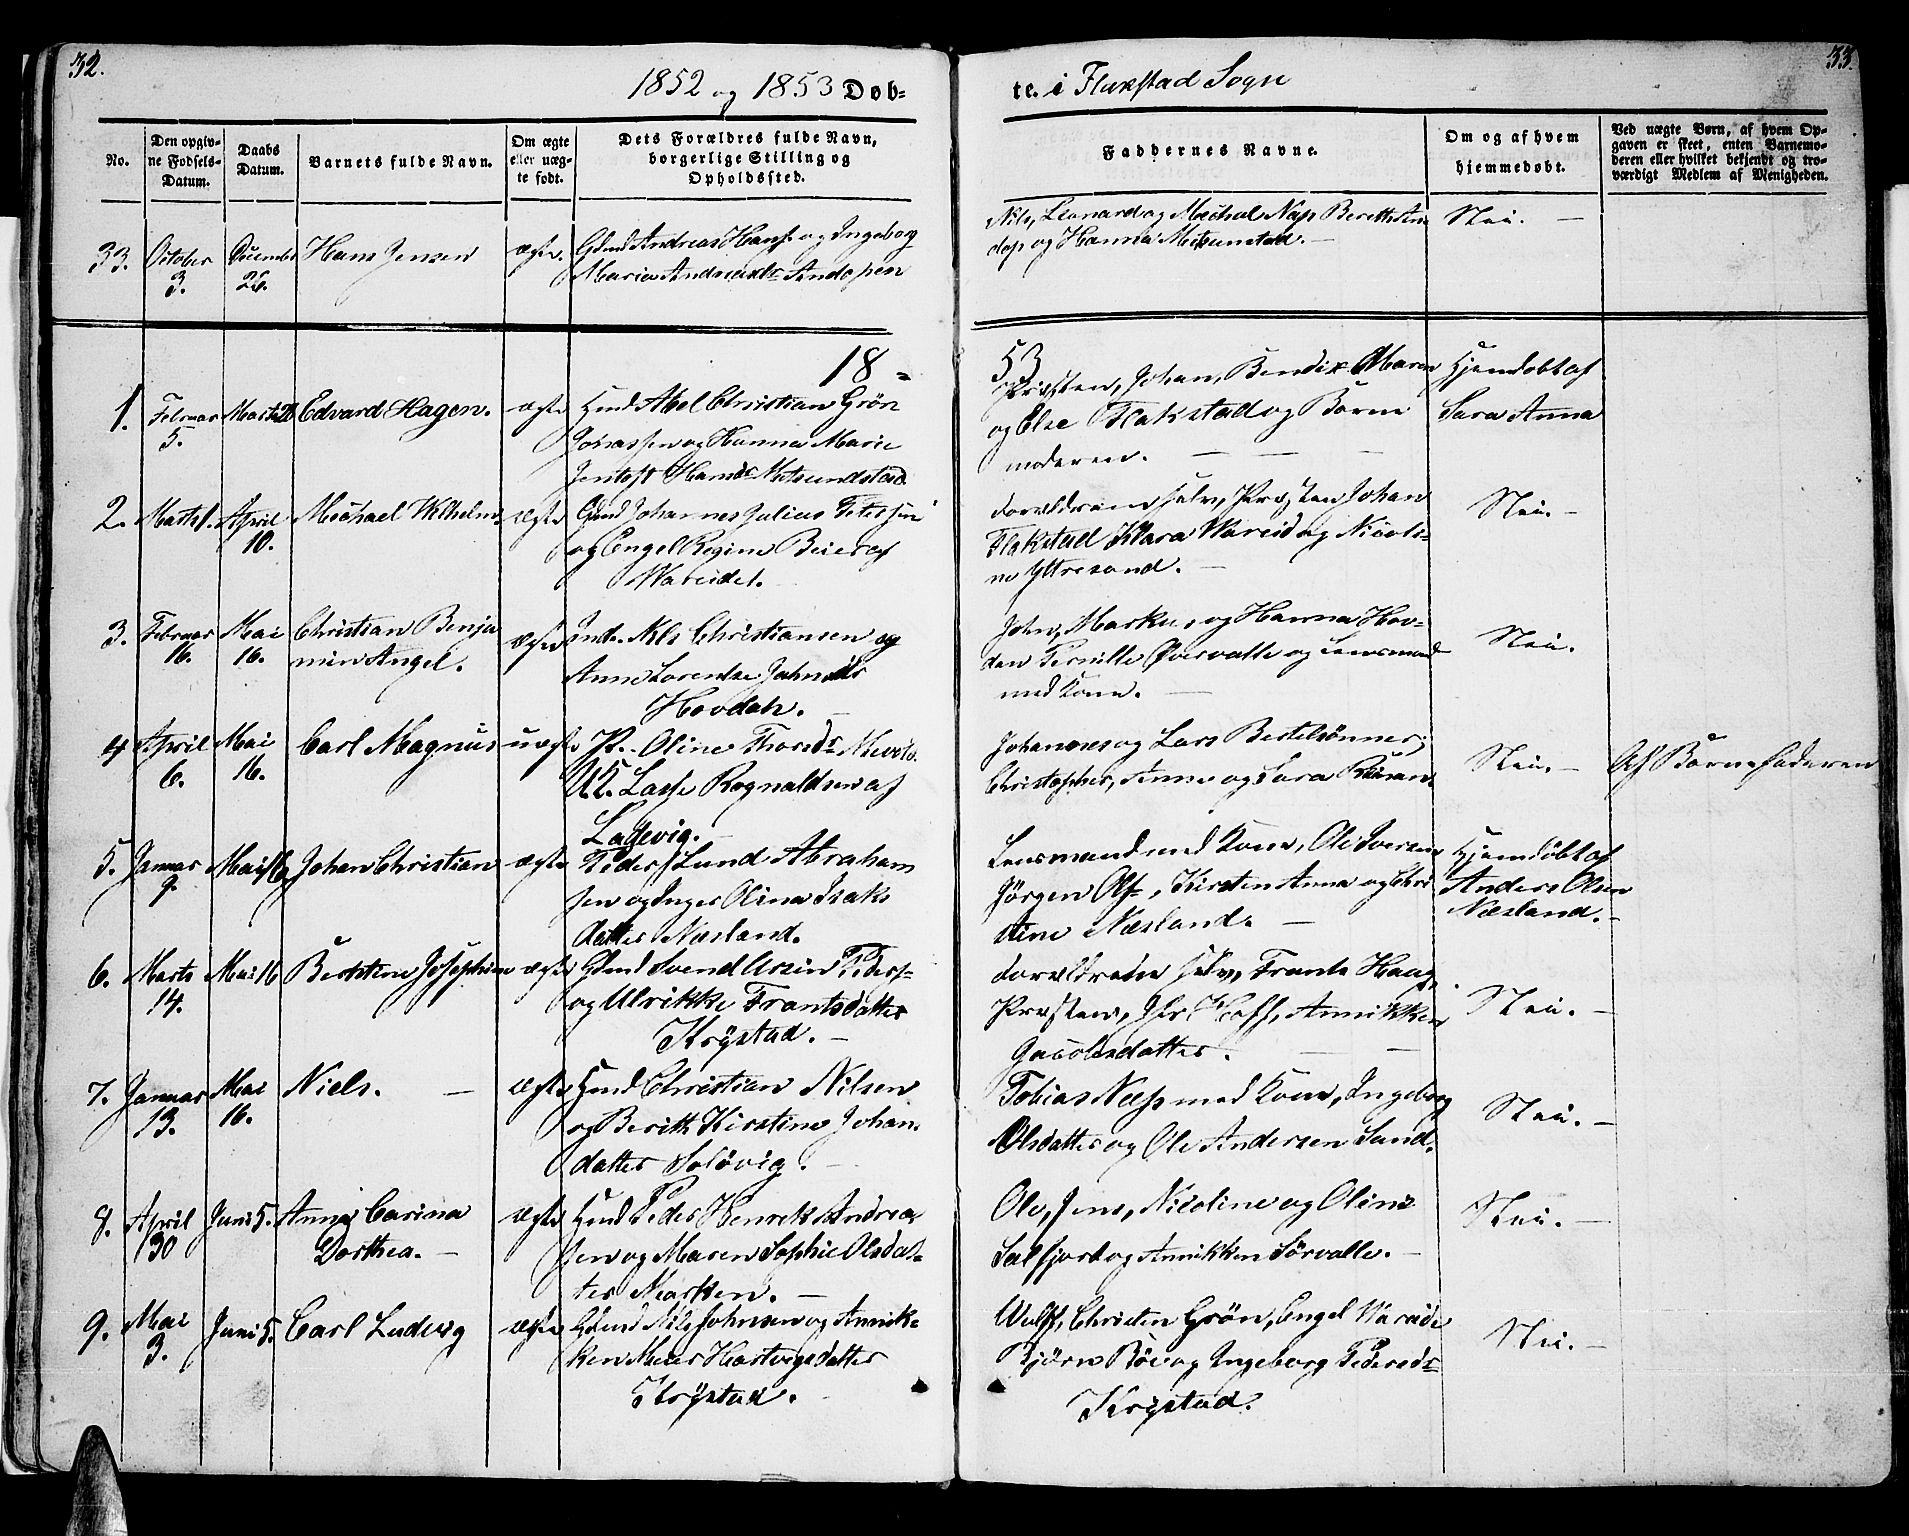 32.
33.
1852 og 1853 Døb-
te. i Flakstad Sogn
No.
Den opgiv-
ne Fødsels-
Datum.
Daabs
Datum.
Barnets fulde Navn.
Om ægte
eller uæg-
te født.
Dets Forældres fulde Navn,
borgerlige Stilling og
Opholdssted.
Faddernes Navne.
Om og af hvem
hjemmedøbt.
Ved uægte Børn, af hvem Op-
gaven er skeet, enten Barnemo-
deren eller hvilket bekjendt og tro-
værdigt Medlem af Menigheden.
33. October 3. December 26. Hans Jensen ægte. Gdmd Andreas Hans. og Ingeborg
Maria Andreasdr Andopen
Nils, Leonard og Michal Nap Berith An
dop og Hanna Mølsunstad. Nei.
18-
53
1. Februar 5. Marts Edvard Hagen. ægte Hmd Abel Christian Grøn
Jonassen og Hanna Marie
Jentoft Hansdr Mølsundstad
Præsten, Johan, Bendix Maren
og Else Flakstad og Barne
moderen.
Hjemdøbt af
Sara Anna
2. Marts 1. April 10. Michael Wilhelm ægte Gmd Johannes Julius Peterssen
og Engel Regine Beier af
Wareidet.
Forældrene selv, Præsten Johan
Flakstad Klara Wareid og Nicoli-
ne Yttresand. Nei.
3. Februar 16. Mai 16. Christian Benja
min Angel. ægte Inds. Nils Christiansen og
Anne Lorentse Johnsdr
Hovden.
John, Markus og Hanna Hov-
den Pernille Øvervalle og Lensmand
med Kone. Nei.
4 April 6. Mai 16. Carl Magnus uægte P. Oline Thorsdr
UK. Lasse Rognaldsen af
Ladevig.
Johannes og Lars Bertelsønner,
Christopher, Anne og Sara
Nei. Af Barnefaderen
5. Januar 9. Mai 16 Johan Christian ægte Peder Lund Abraham
sen og Inger Olina Isaks
datter Næsland.
Lensmand med Kone, Ole Iversen
Jørgen Ols, Kirsten Anna og Chri
stine Næsland.
Hjemdøbt af
Anders Olsen
Næsland.
6. Marts 14. Mai 16 Berntine Josephine ægte Gdmd Svend Peders-
og Ulrikke Frantsdatter
Krystad.
Forældrene selv, Frants Haug,
Præsten, Hoff, Annikken
Jacobsdatter. Nei.
7. Januar 13. Mai 16. Niels. ægte Hmd Christian Nilsen
og Berith Kirstine Johan.
datter Soløvig.
Tobias Næss med Kone, Ingeborg
Olsdatter og Ole Andersen Sund. Nei.
8. April 30 Juni 5. Anne Carina
Dorthea. ægte Hmd Peder Henrik Andrea
sen og Maren Sophie Olsdat-
ter Morken.
Ole, Jens, Nicoline og Oline
Selfjord og Annikken Sørvalle. Nei.
9. Mai 3. Juni 5. Carl Ludvig ægte Gdmd Nils Johnsen og Annik-
ken Meier Hartvigsdatter
Krystad.
Wulff, Christen Grøn, Engel Wareide
Bjørn Bøe og Ingeborg Pedersdr
Krystad. Nei.